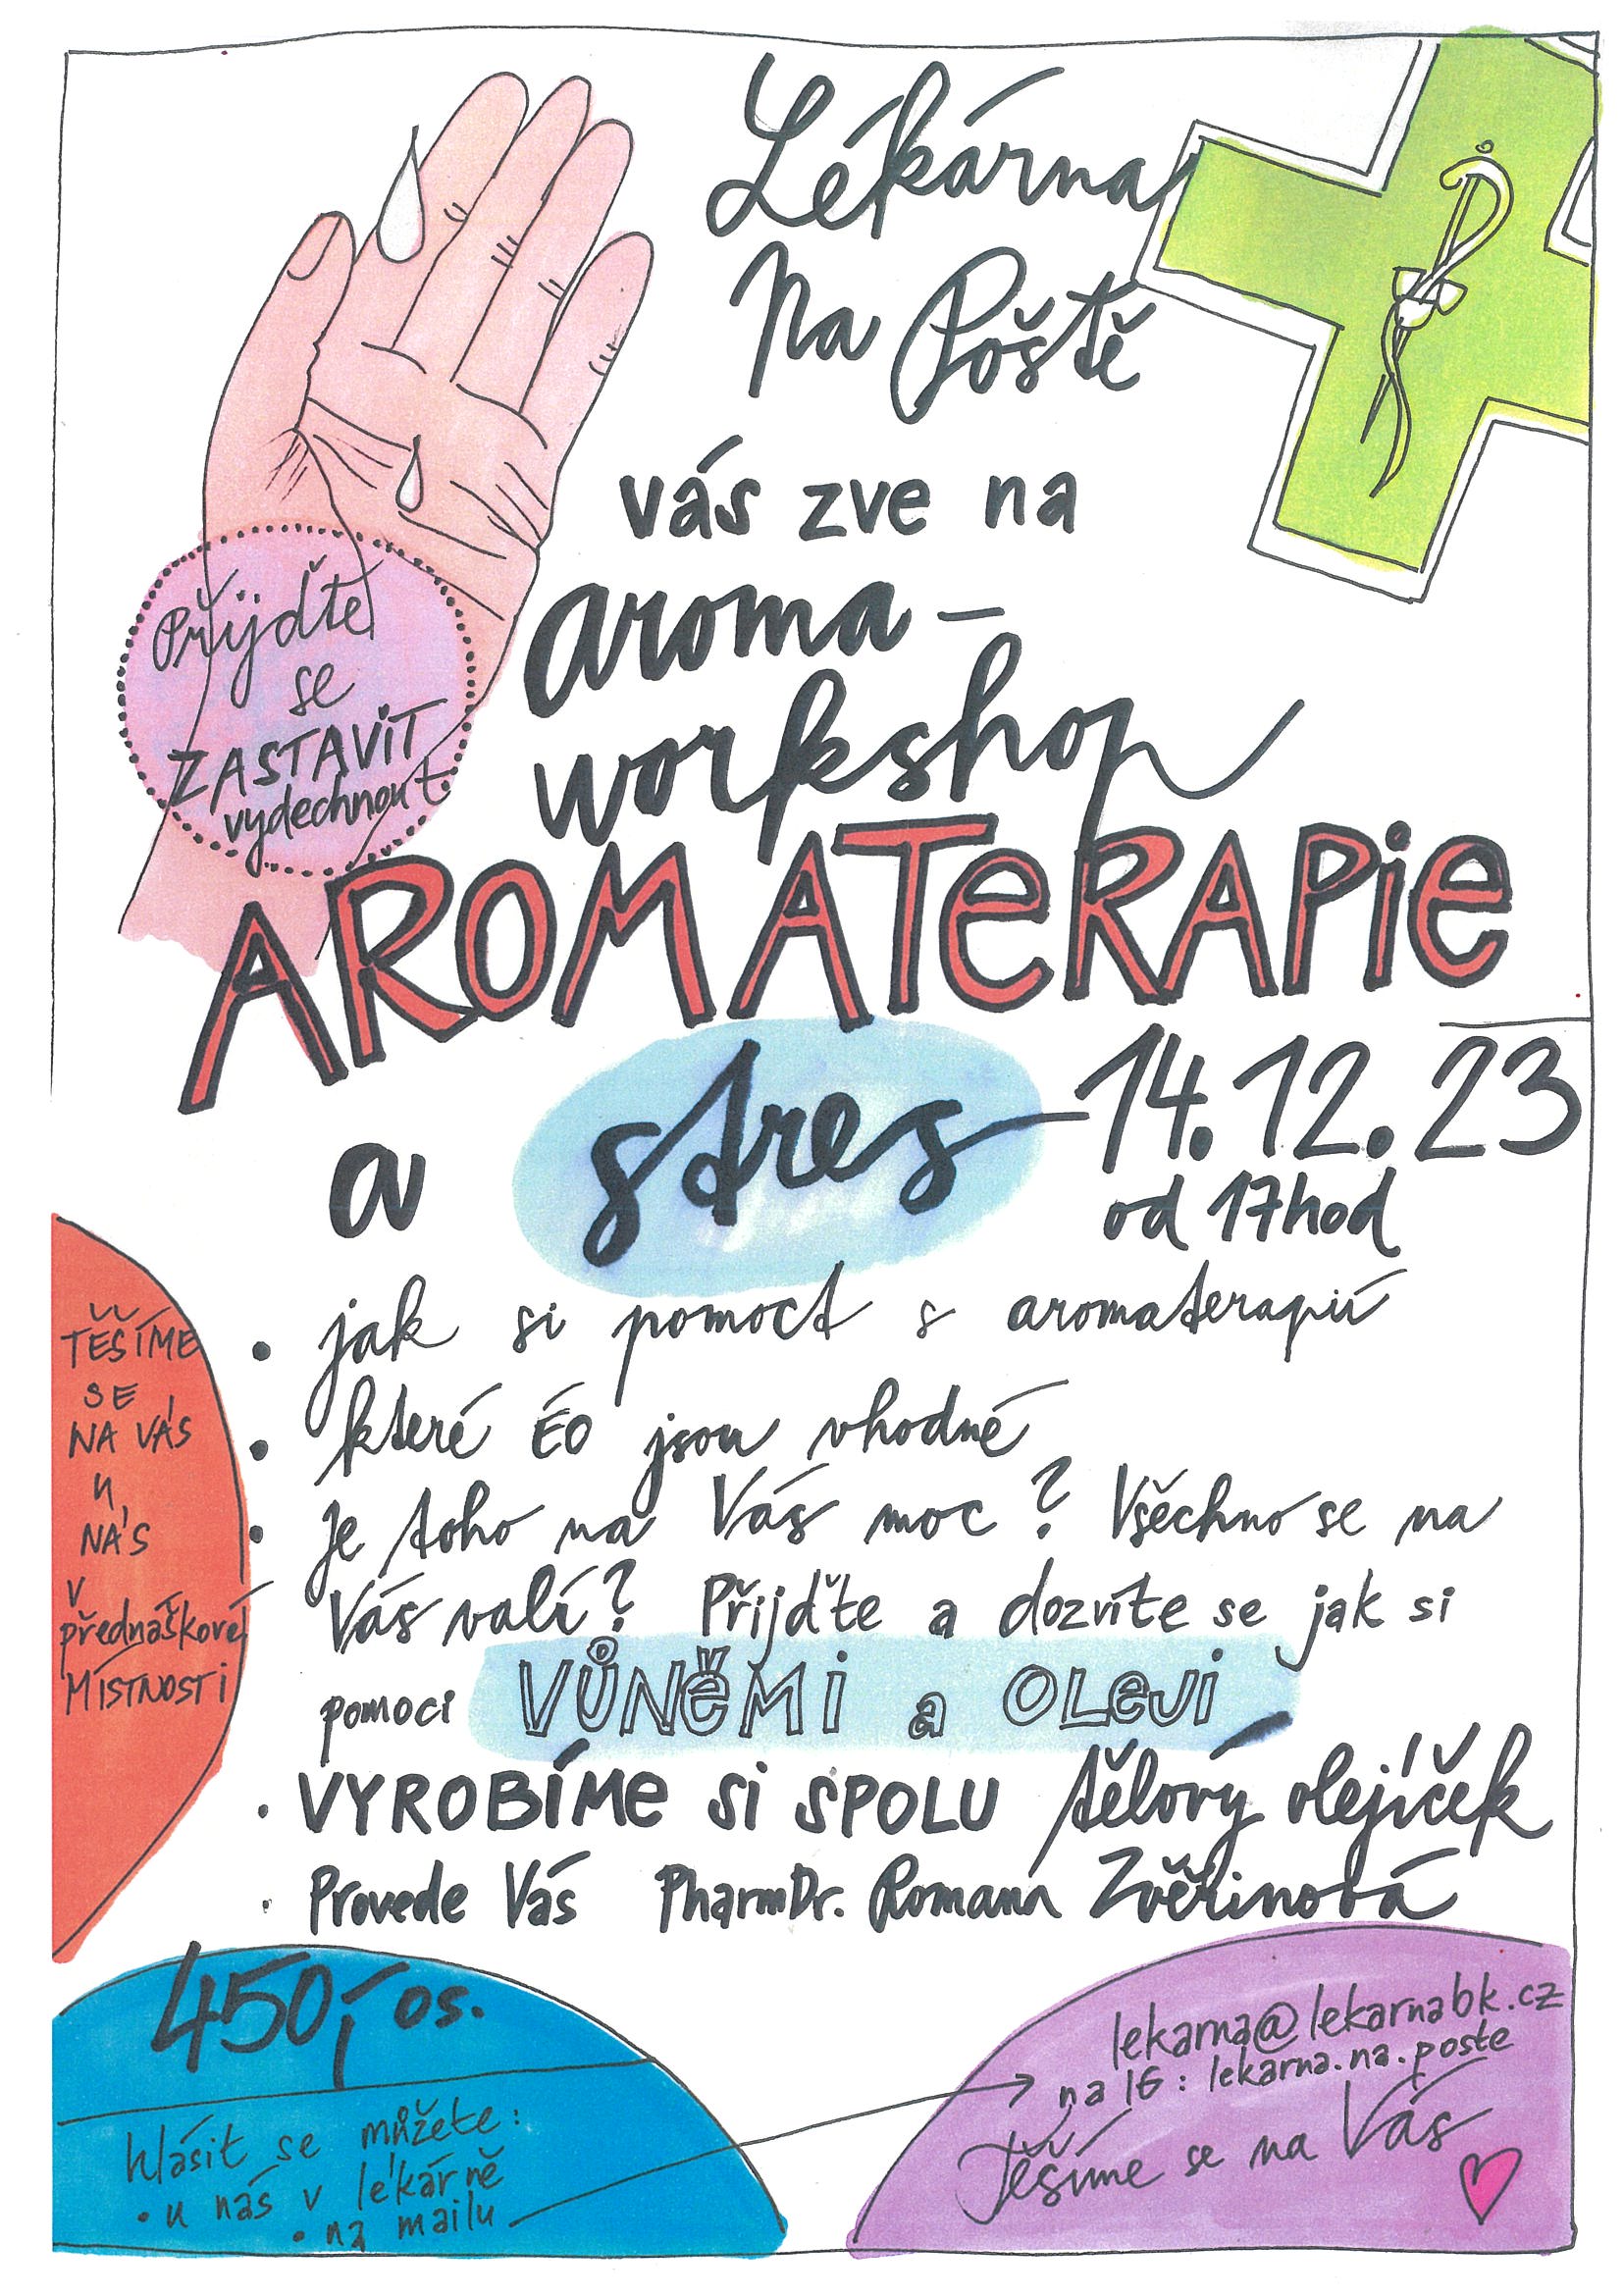 Lékárna
Na Poště
vás zve na
aroma-
workshop
Přijďte
se
ZASTAVIT
vydechnout
AROMATERAPIE
a stres
14.12.23
od 17hod
• jak si pomoct s aromaterapií
• které ÉO jsou vhodné
• Je toho na Vás moc? Všechno se na
Vás valí? Přijďte a dozvíte se jak si
pomoci VŮNĚMI a OLEJI
• VYROBÍME SI SPOLU tělový olejíček
• Provede Vás PharmDr. Romana Zvěřinová
TĚŠÍME
SE
NA VÁS
U
NÁS
V
přednáškové
MÍSTNOSTI
450,- os.
hlásit se můžete:
• u nás v lékárně
• na mailu
lekarna@lekarnabk.cz
na IG: lekarna.na.poste
Těšíme se na Vás